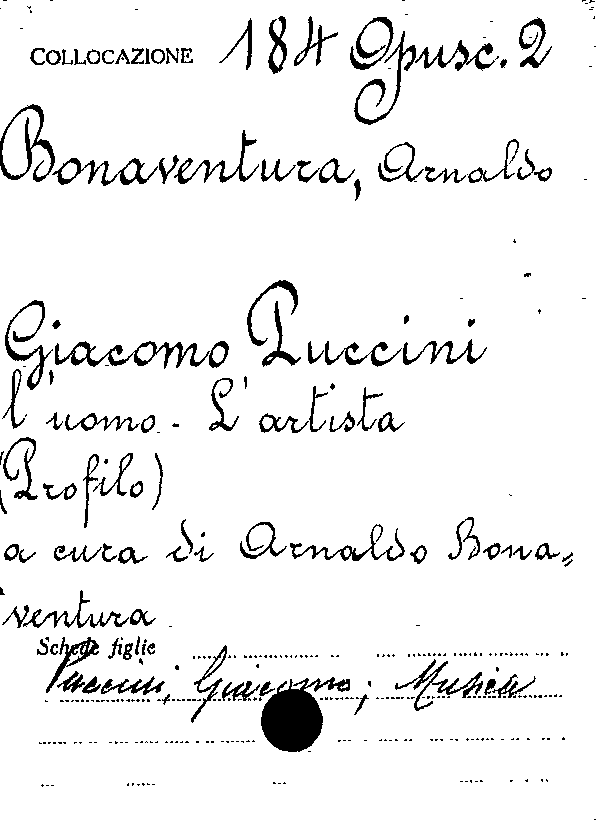 COLLOCAZIONE 184 Opusc. 2
Bonaventura, Arnaldo
Giacomo Puccini
l'uomo - L'artista
(Profilo)
a cura di Arnaldo Bona=
ventura
Schede figlie
Puccini, Giacomo; Musica